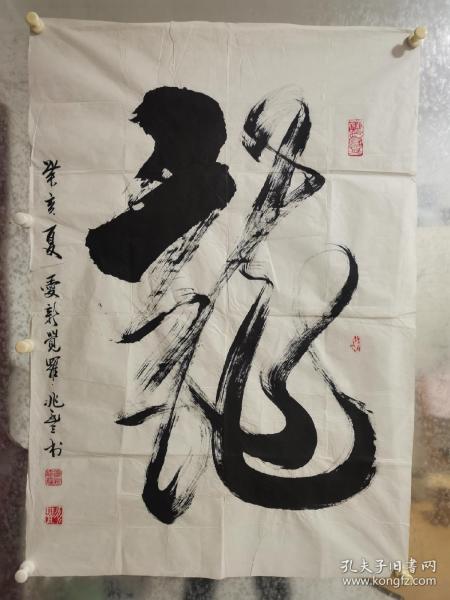 龍
癸亥夏 愛新覺羅 兆豐书
孔夫子旧书网
www.kongfz.com